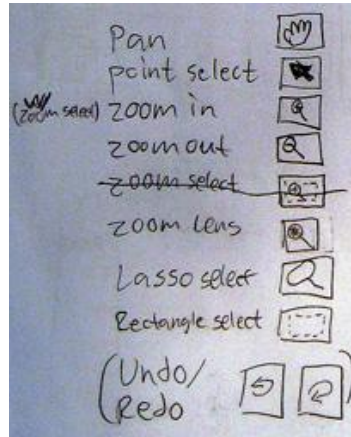 Pan
point select
(zoom select) zoom in
zoom out
zoom select
zoom lens
Lasso select
Rectangle select
(Undo/
Redo